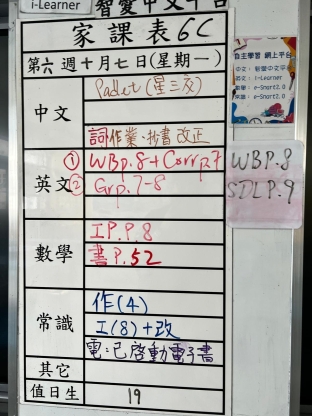 i-Learner 智愛中文平台
家課表6C
第六週十月七日(星期一)
中文
Padlet (星三交)
詞作業、抄書 改正
英文
① WBp.8+Corrp.7
② Grp.7-8
數學
I.P.P.8
書P.52
常識
作(4)
工(8)+改
電:已啓動電子書
其它
值日生
19
自主學習 網上平台
中文: 智愛中文平台
英文: i-Learner
數學: e-Smart2.0
常識: e-Smart2.0
WBP.8
SDLP.9